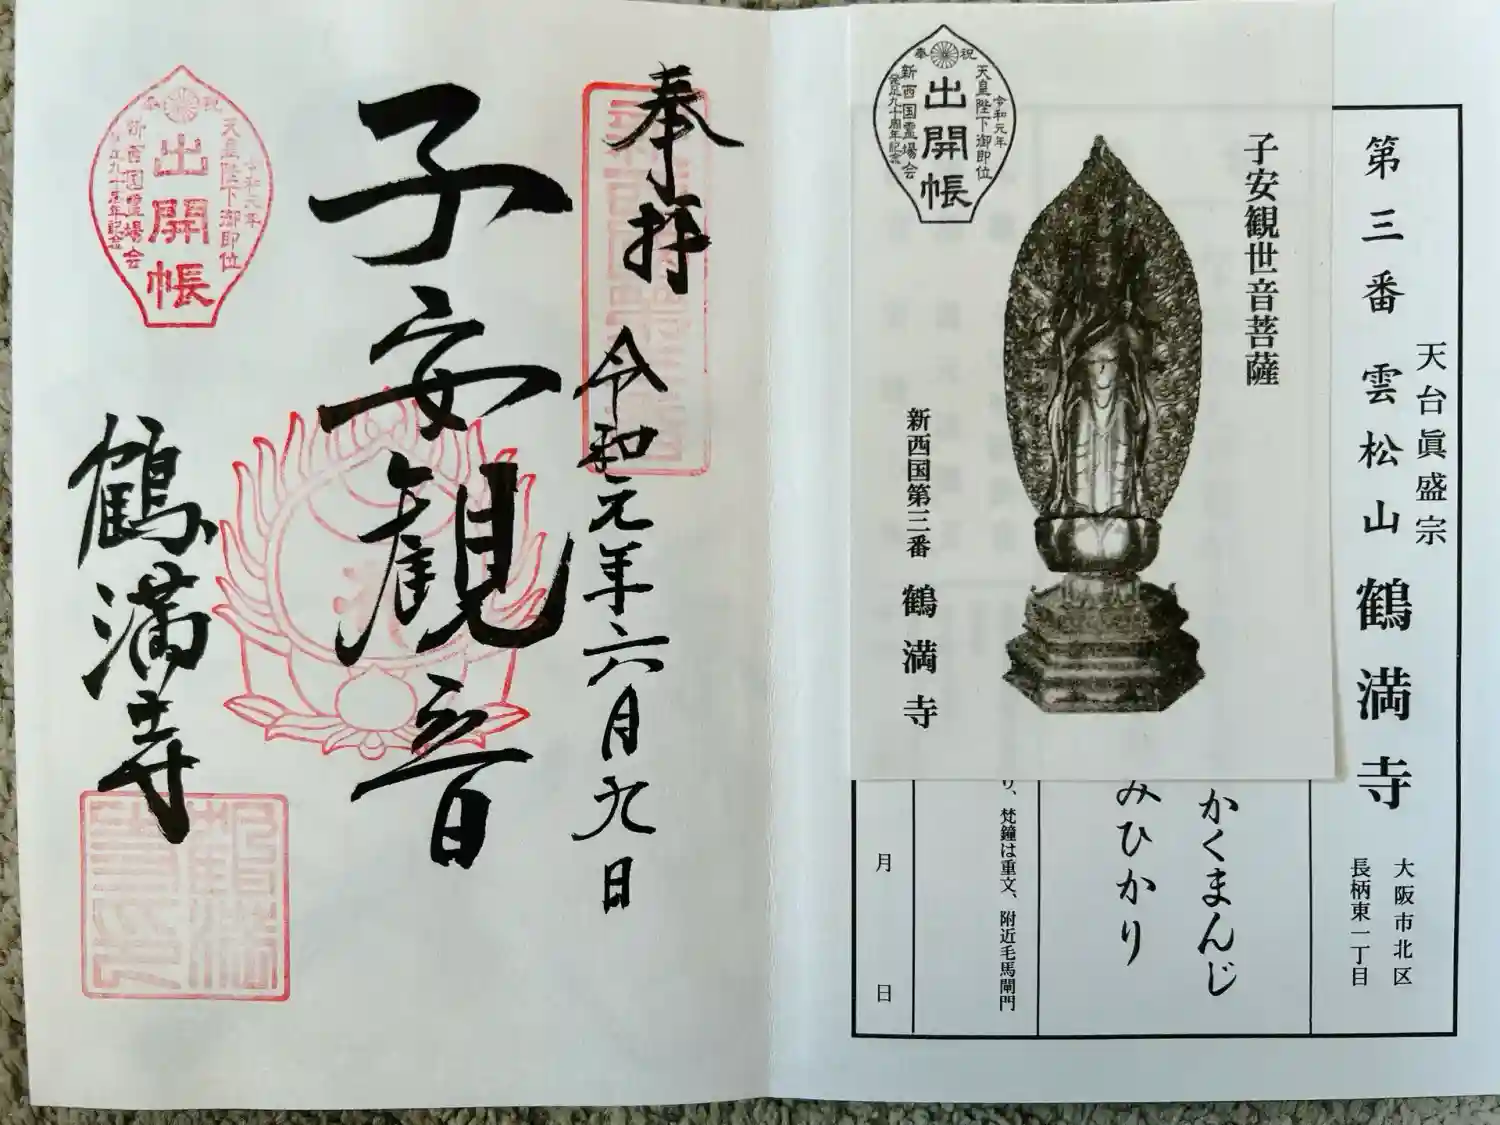 第三番 雲松山 鶴満寺
天台眞盛宗
大阪市北区
長柄東一丁目
かくまんじ
みひかり
り、梵鐘は重文、附近毛馬閘門
月 日
子安観世音菩薩
新西国第三番 鶴満寺
奉祝
令和元年
天皇陛下御即位
出開帳
新西国霊場会
発足九十周年記念
奉拝
令和元年六月九日
子安観音
鶴満寺
奉祝
令和元年
天皇陛下御即位
出開帳
新西国霊場会
九十周年記念